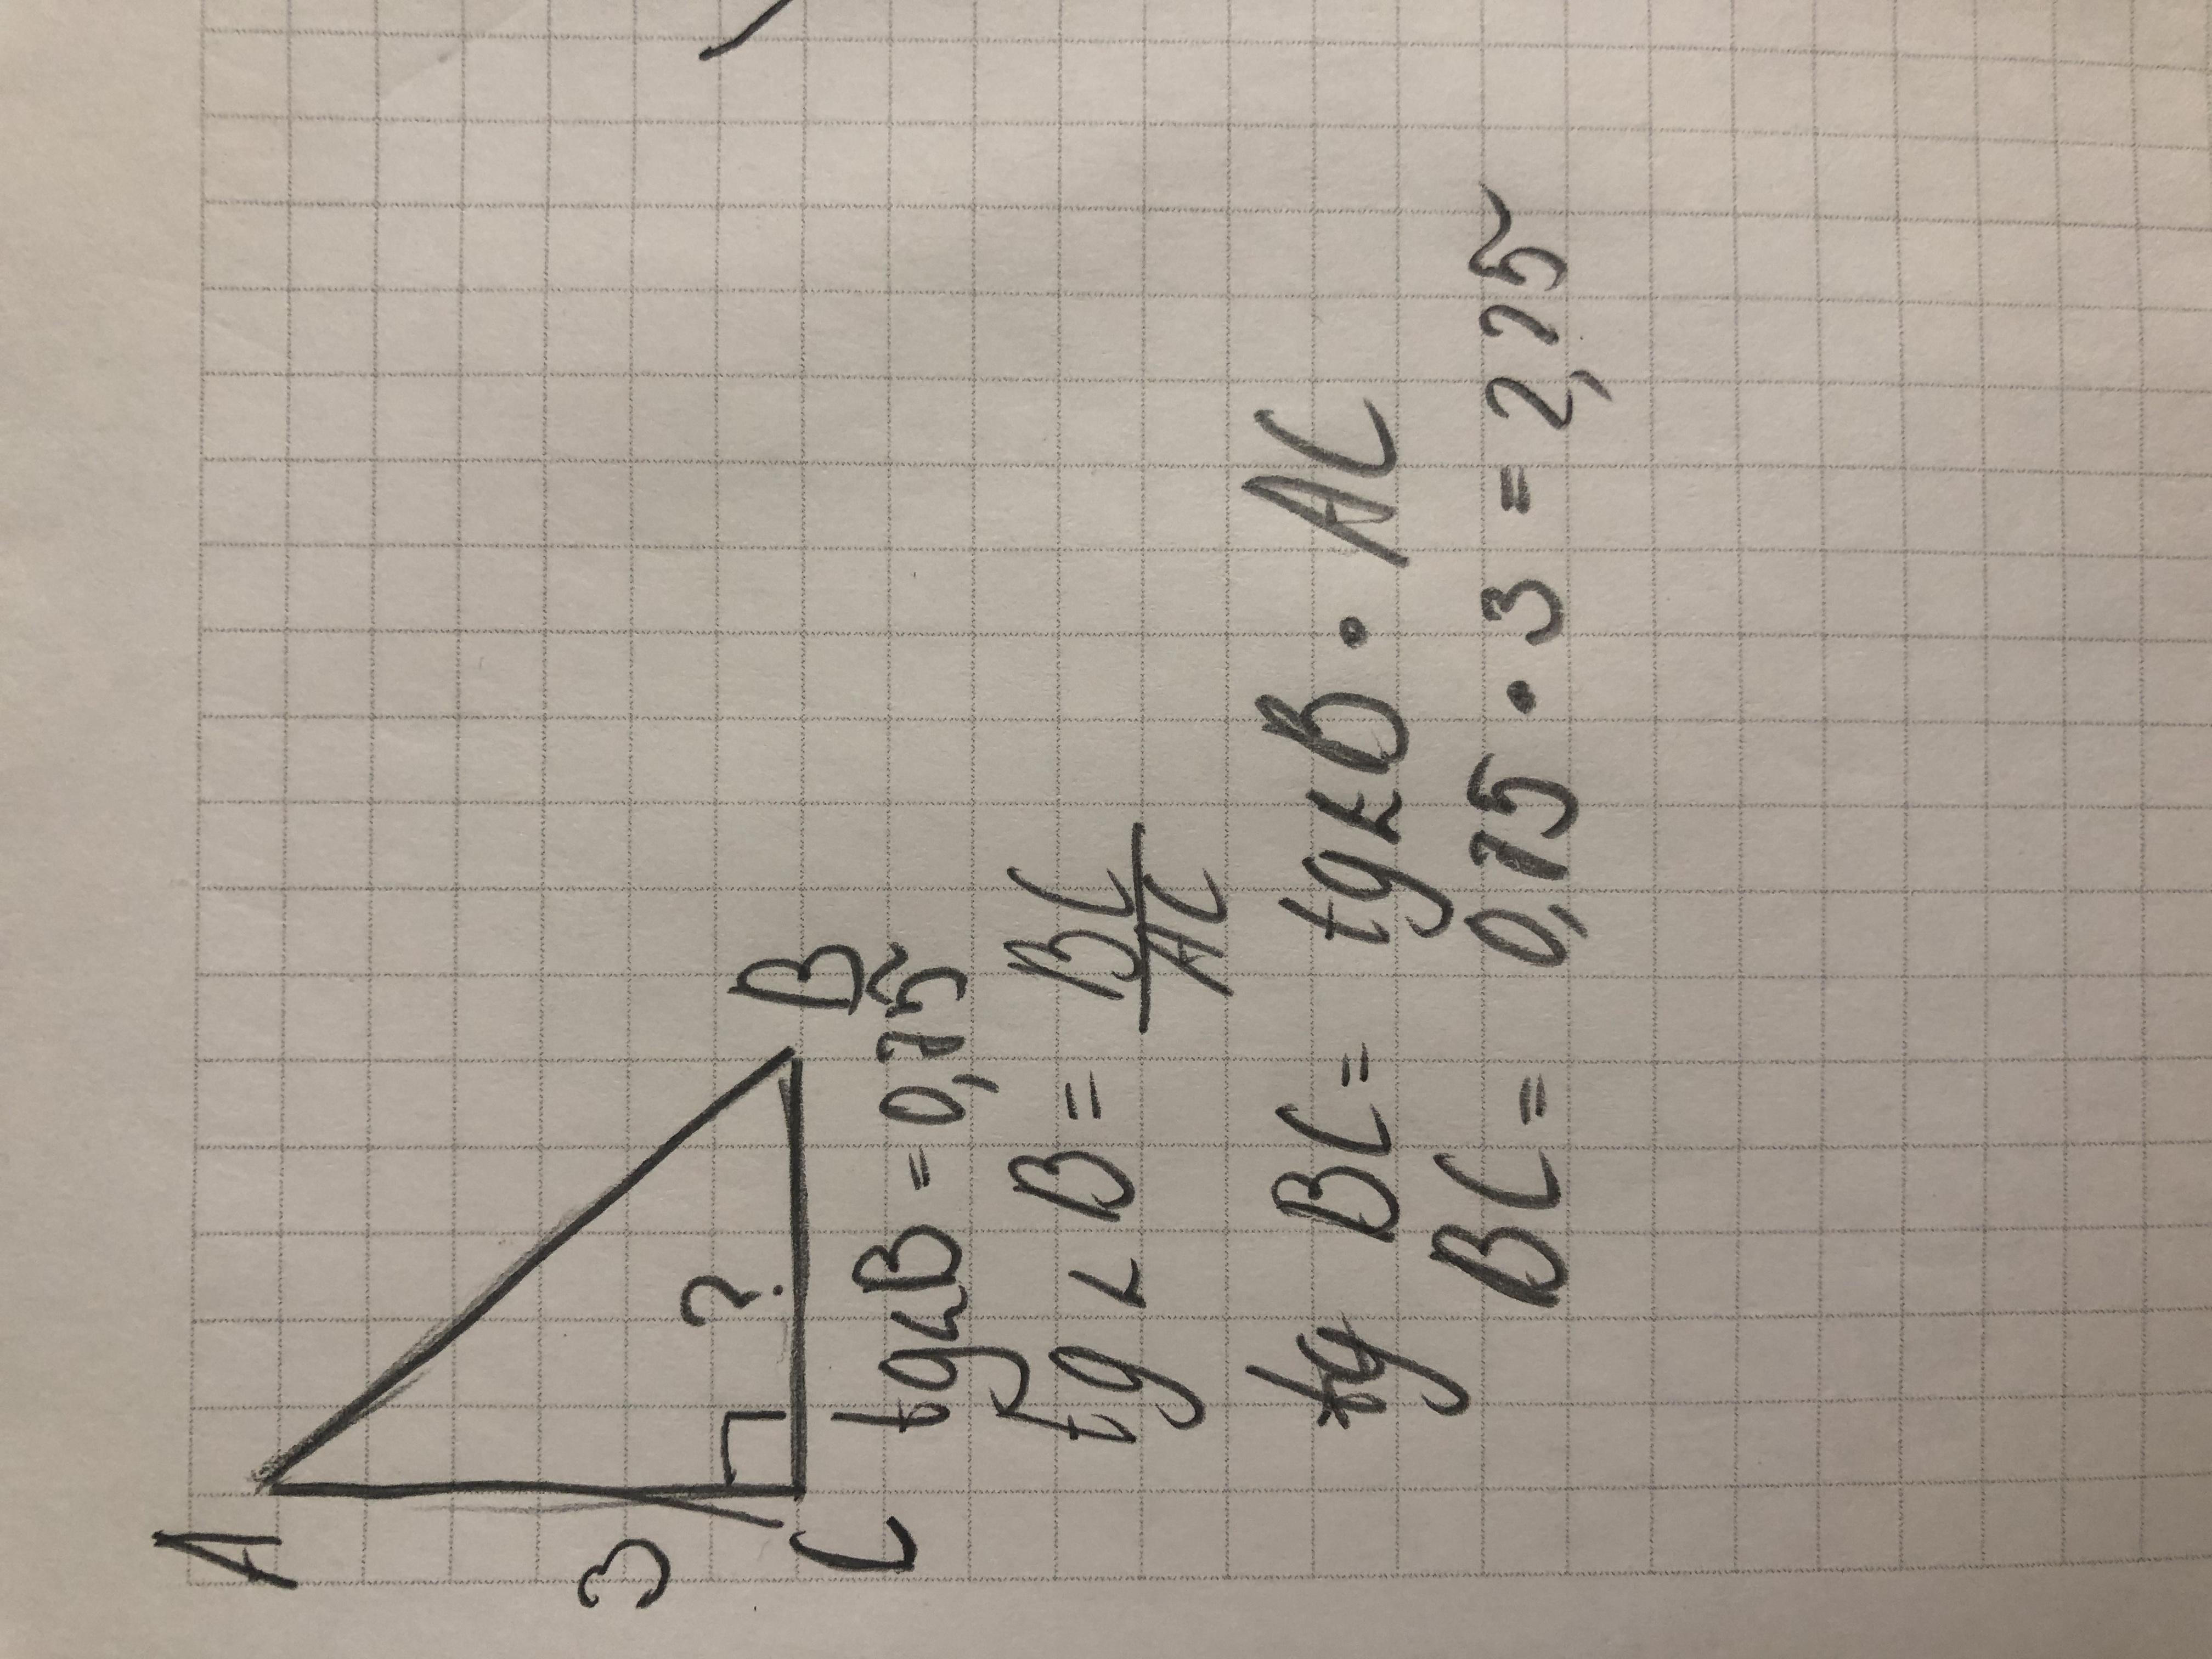 A
3
?
C
B
tg∠B = 0,75
tg ∠B = BC/AC
tg BC = tg∠B · AC
BC = 0,75 · 3 = 2,25